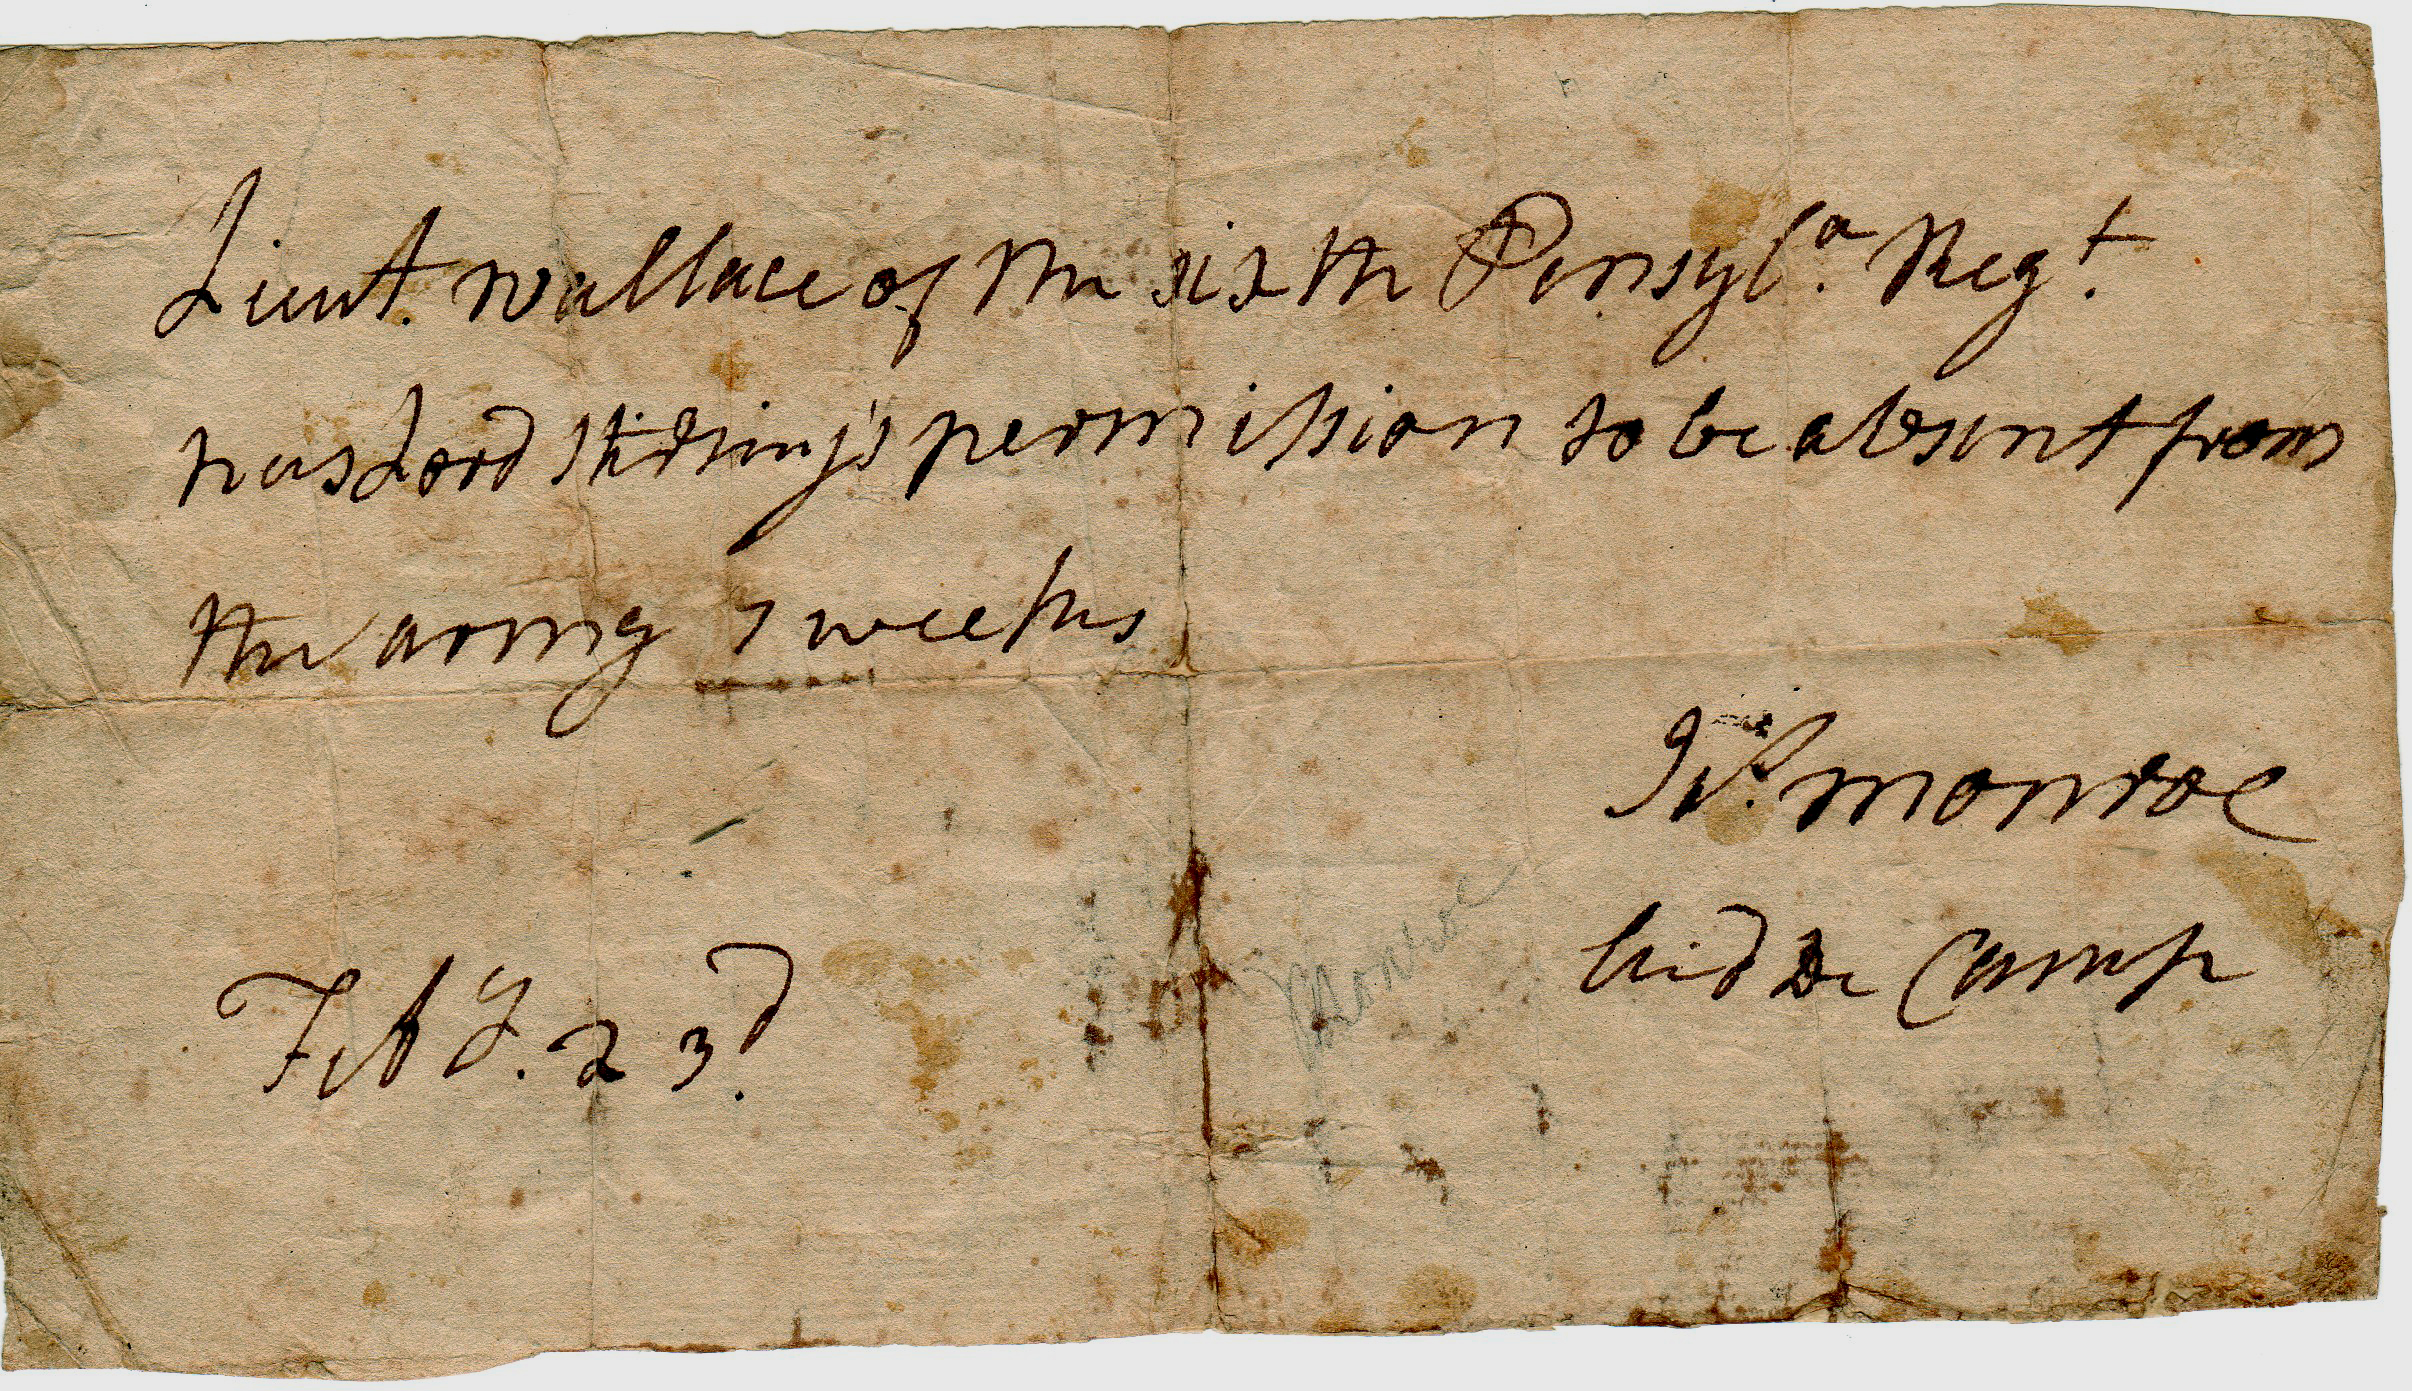 Lieut. Wallace of the sixth Pensyla. Regt.
has Lord Stirling's permission to be absent from
the army 7 weeks
Jas. Monroe
Aid De Camp
Monroe
Feby. 23d.